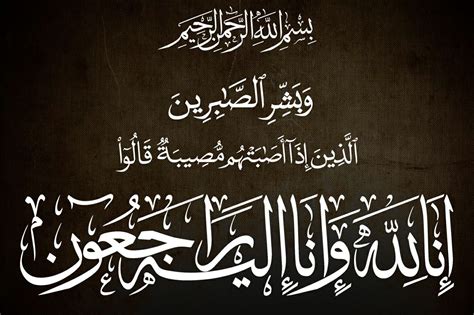 بِسْمِ اللَّهِ الرَّحْمَنِ الرَّحِيمِ
وَبَشِّرِ الصَّابِرِينَ
الَّذِينَ إِذَا أَصَابَتْهُم مُّصِيبَةٌ قَالُوا
إِنَّا لِلَّهِ وَإِنَّا إِلَيْهِ رَاجِعُونَ